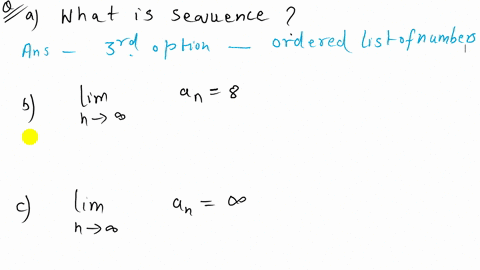 Q a) What is sequence ?
Ans - 3rd option — ordered list of numbers
b) lim n→∞ an = 8
c) lim n→∞ an = ∞